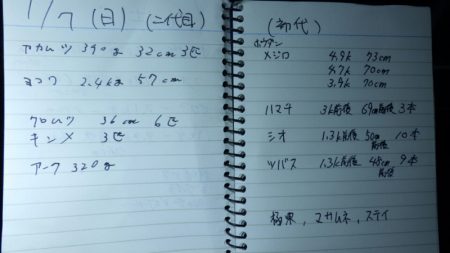 1/7 (日) (二代目)
アカムツ 390g 32cm 3匹
ヨコワ 2.4kg 57cm
クロムツ 36cm 6匹
キンメ 3匹
320g
(初代)
メジロ 4.9k 73cm
4.7k 70cm
3.9k 70cm
ハマチ 3k前後 69cm前後 3本
シオ 1.3k前後 50cm前後 10本
ツバス 1.3k前後 48cm前後 9本
極東, マサムネ, ステイ